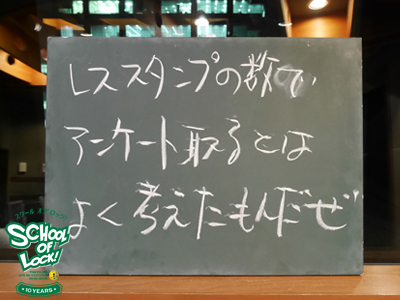 レススタンプの数で
アンケート取るとは
よく考えたもんだぜ
スクール オブ ロック!
SCHOOL
OF
LOCK!
10 YEARS